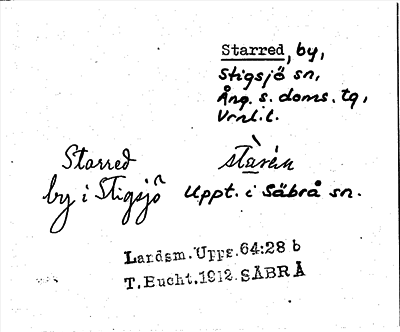 Starred, by,
Stigsjö sn,
Ång. s. doms. tg,
Vrnl. l.
Starred
by i Stigsjö
Uppt. i Säbrå sn.
Landsm. Upps. 64:28 b
T. Eucht. 1912. SÄBRÅ